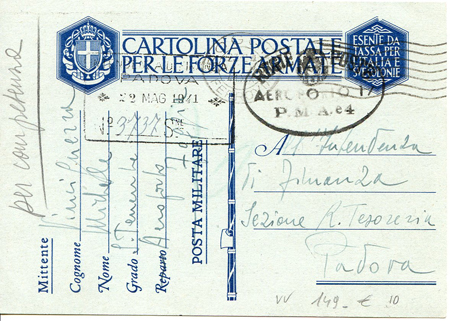 CARTOLINA POSTALE
PER LE FORZE ARMATE
ESENTE DA
TASSA PER
ITALIA E
COLONIE
PADOVA
22 MAG 1941
N° 3737 S
AEROPORTO
P.M.A. e4
per competenza
Mittente
Cognome
Nome Michele
Grado S. Tenente
Reparto Aeroporto
POSTA MILITARE
All'Intendenza
di Finanza
Sezione R. Tesoreria
Padova
VV 149 - € 10